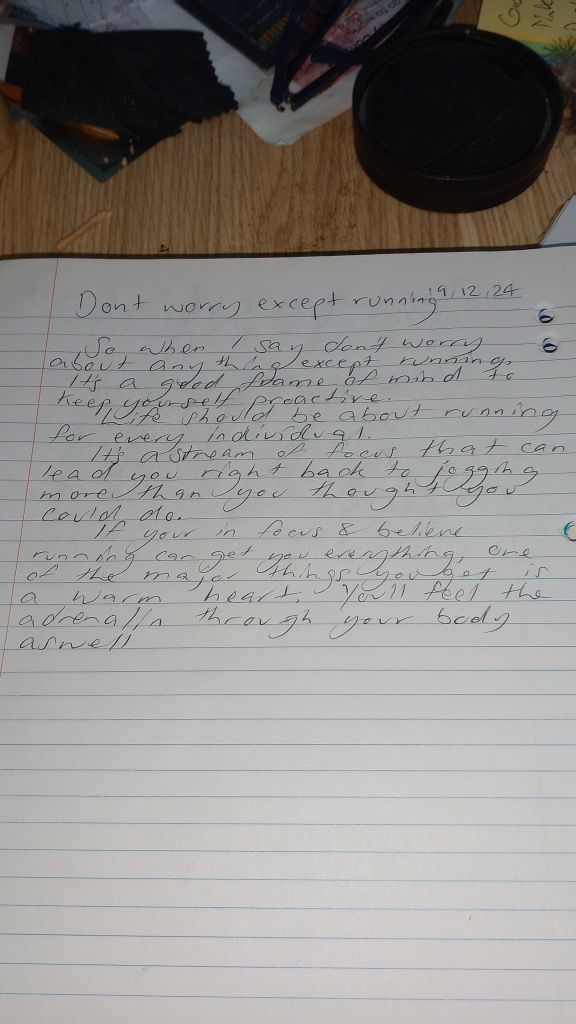 Dont worry except running 19,12,24
So when I say dont worry
about any thing except running,
It's a good frame of mind to
keep yourself proactive.
Life should be about running
for every individual.
It's a stream of focus that can
lead you right back to jogging
more than you thought you
could do.
If your in focus & believe
running can get you everything, one
of the major things you get is
a warm heart. You'll feel the
adrenalin through your body
aswell